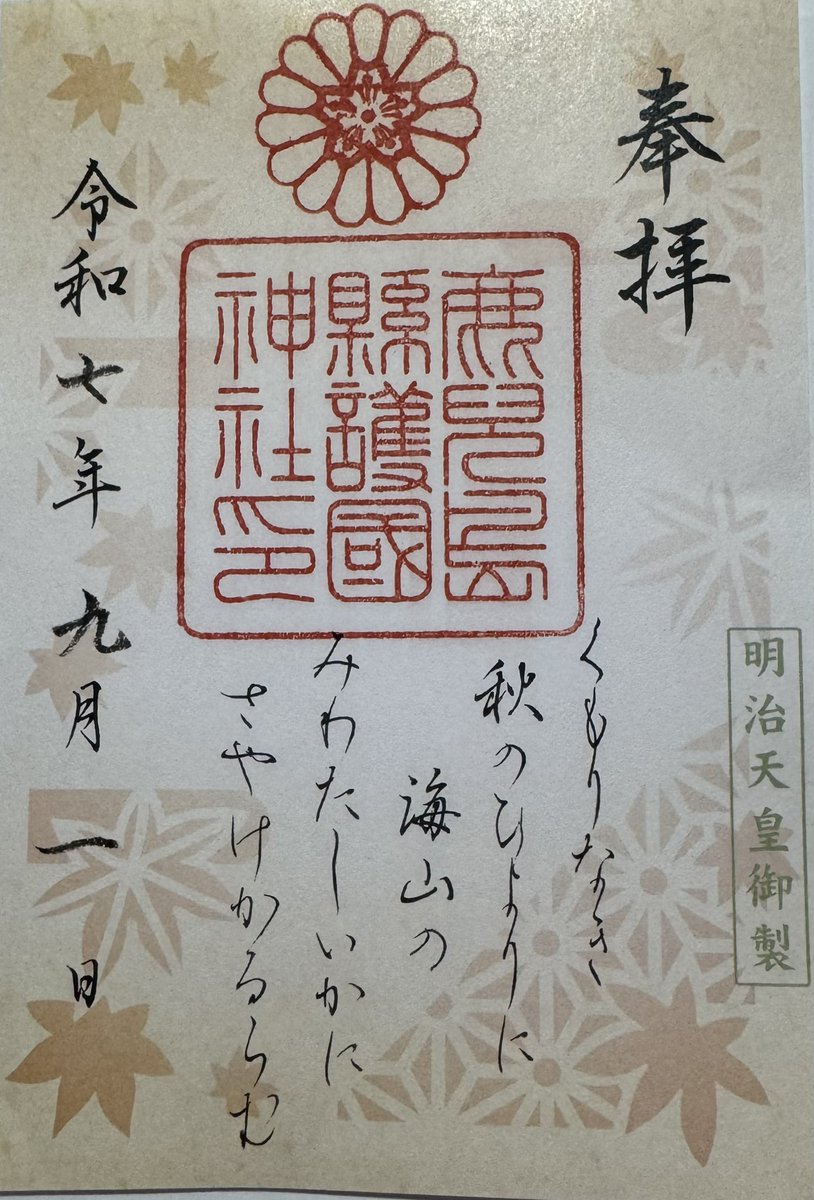 奉拝
明治天皇御製
鹿児島
縣護國
神社印
くもりなき
秋のひよりに
海山の
みわたしいかに
さやけかるらむ
令和七年九月一日